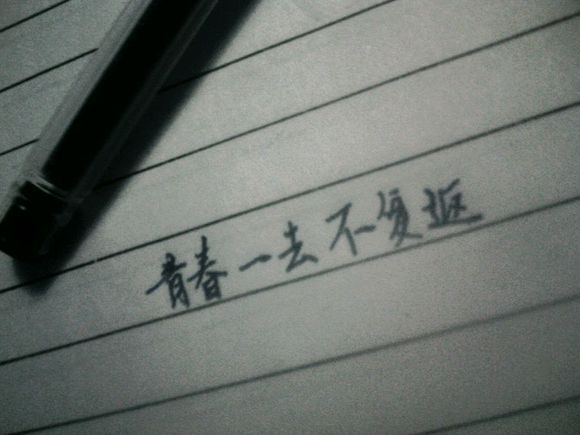 青春一去不复返